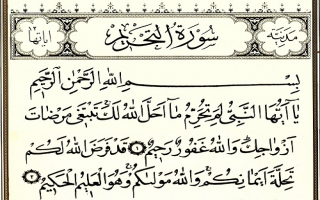 مدنية سورة التحريم اياتها
بِسْمِ اللهِ الرَّحْمٰنِ الرَّحِيْمِ
يَا اَيُّهَا النَّبِيُّ لِمَ تُحَرِّمُ مَا اَحَلَّ اللهُ لَكَ تَبْتَغِي مَرْضَاتَ
اَزْوَاجِكَ وَاللهُ غَفُورٌ رَحِيمٌ ١ قَدْ فَرَضَ اللهُ لَكُمْ
تَحِلَّةَ اَيْمَانِكُمْ وَاللهُ مَوْلٰيكُمْ وَهُوَ الْعَلِيمُ الْحَكِيمُ ٢